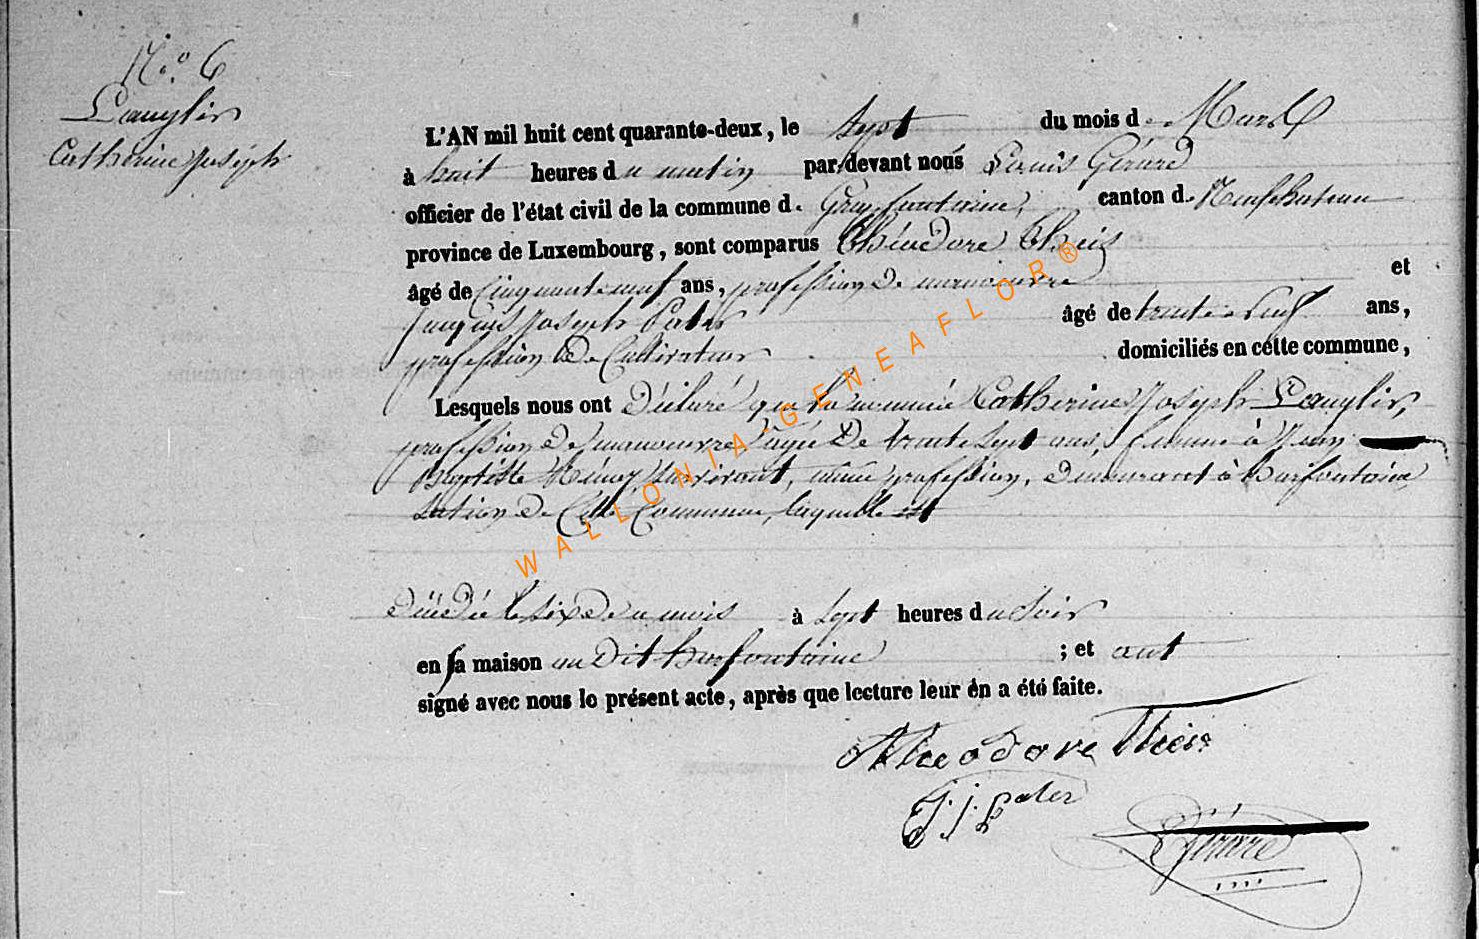 N.o 6
Lauglir
Catherine Joseph
L'AN mil huit cent quarante-deux, le Sept du mois de Mars
à huit heures du matin par devant nous Louis Gérard
officier de l'état civil de la commune de Grapfontaine, canton de Neufchateau
province de Luxembourg, sont comparus Théodore Theis
âgé de Cinquante neuf ans, profession de manoeuvre et
Jacques Joseph Pater âgé de trente neuf ans,
profession de Cultivateur domiciliés en cette commune,
Lesquels nous ont Déclaré que la nommée Catherine Joseph Lauglir,
profession de manoeuvre âgée de trente sept ans, femme à Jean
Baptiste survivant, même profession, demeurant à harfontaine
Section de Cette Commune, laquelle est
décédée le six du mois à Sept heures du Soir
en sa maison au Dit harfontaine ; et ont
signé avec nous le présent acte, après que lecture leur én a été faite.
Theodore Theis
J. j. Pater
L Gérard
WALLONIA-GENEAFLOR®